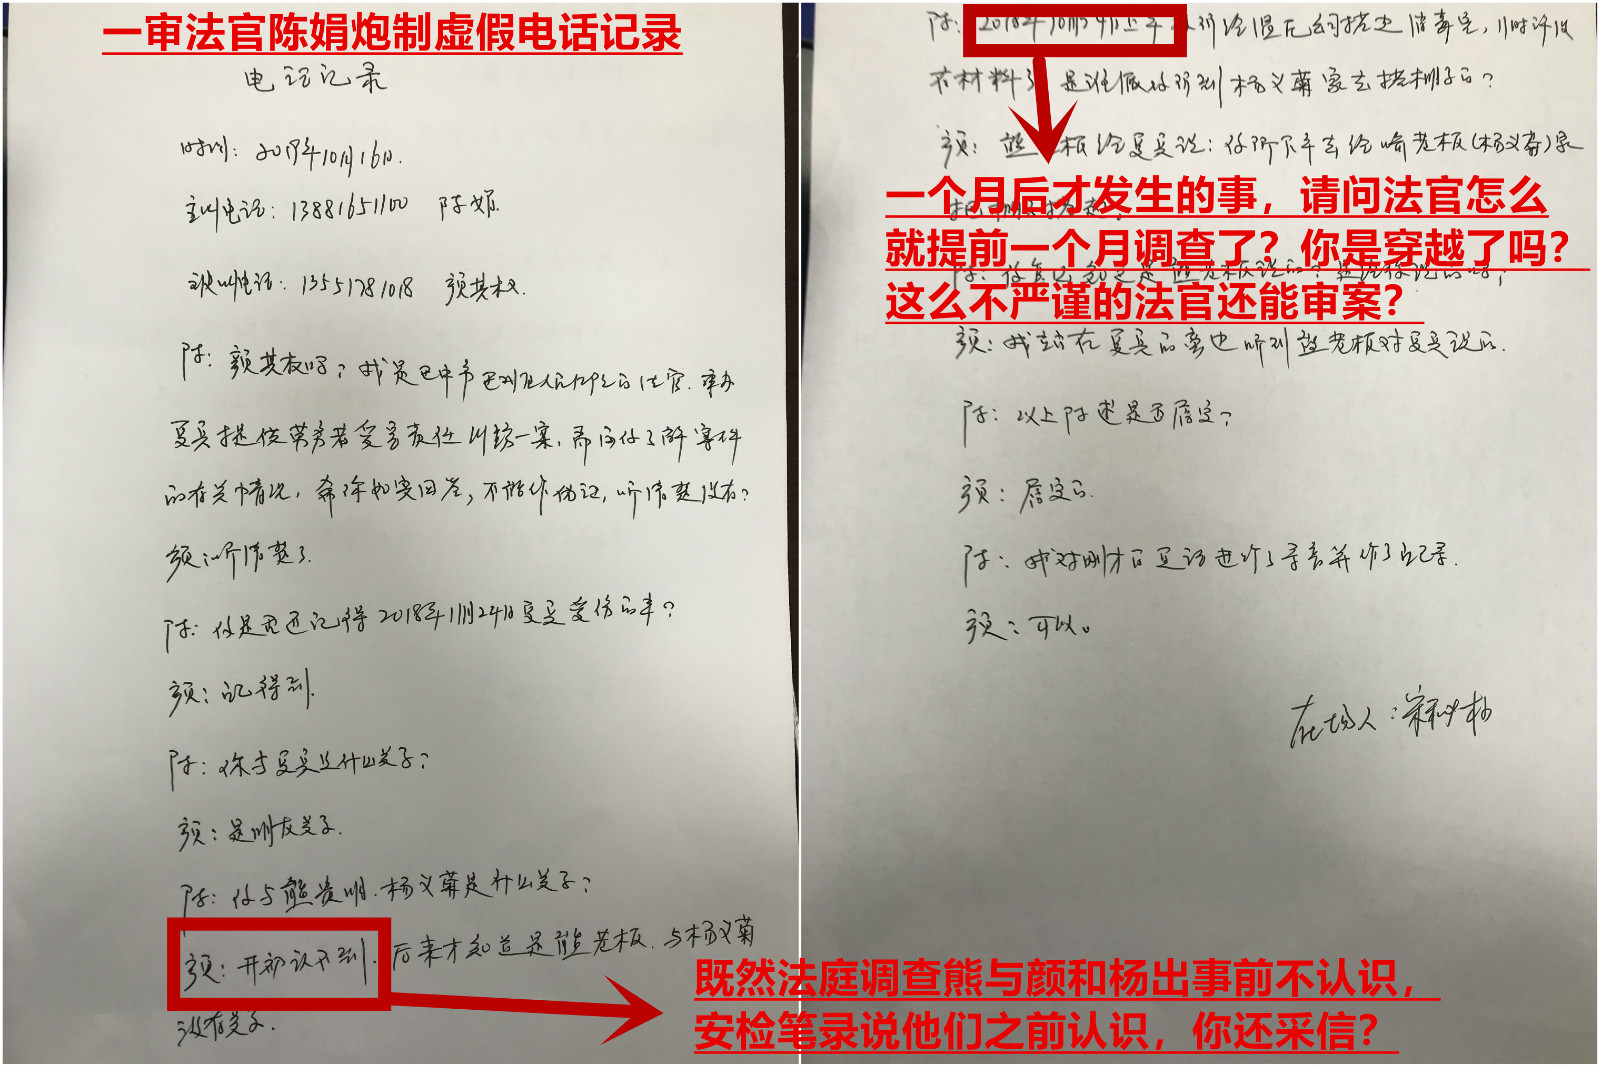 一审法官陈娟炮制虚假电话记录
电话记录
时间：2019年10月16日.
主叫电话：13881651100 陈娟.
被叫电话：13551781018 颜其权.
陈：颜其权吗？我是巴中市巴州区人民法院的法官.审办
夏兵提供劳务者受害责任纠纷一案，需向你了解案件
的有关情况，希你如实回答，不能作伪证，听清楚没有？
颜：听清楚了.
陈：你是否还记得2018年11月24日夏兵受伤的事？
颜：记得到.
陈：你与夏兵是什么关系？
颜：是朋友关系.
陈：你与熊贵明.杨义菊是什么关系？
颜：开初认不到.后来才知道是熊老板.与杨义菊
没有关系.
陈：2018年10月24日上午
材料了 是谁 你们到杨义菊家去搭棚子的？
颜：熊老板给夏兵说：你们下午去给喻老板(杨义菊)家
一个月后才发生的事，请问法官怎么
就提前一个月调查了？你是穿越了吗？
这么不严谨的法官还能审案？
颜：我站在夏兵的旁边听到熊老板对夏兵说的.
陈：以上陈述是否属实？
颜：属实的.
陈：我对刚才的通话进行了录音并作了记录.
颜：可以。
在场人：
既然法庭调查熊与颜和杨出事前不认识，
安检笔录说他们之前认识，你还采信？